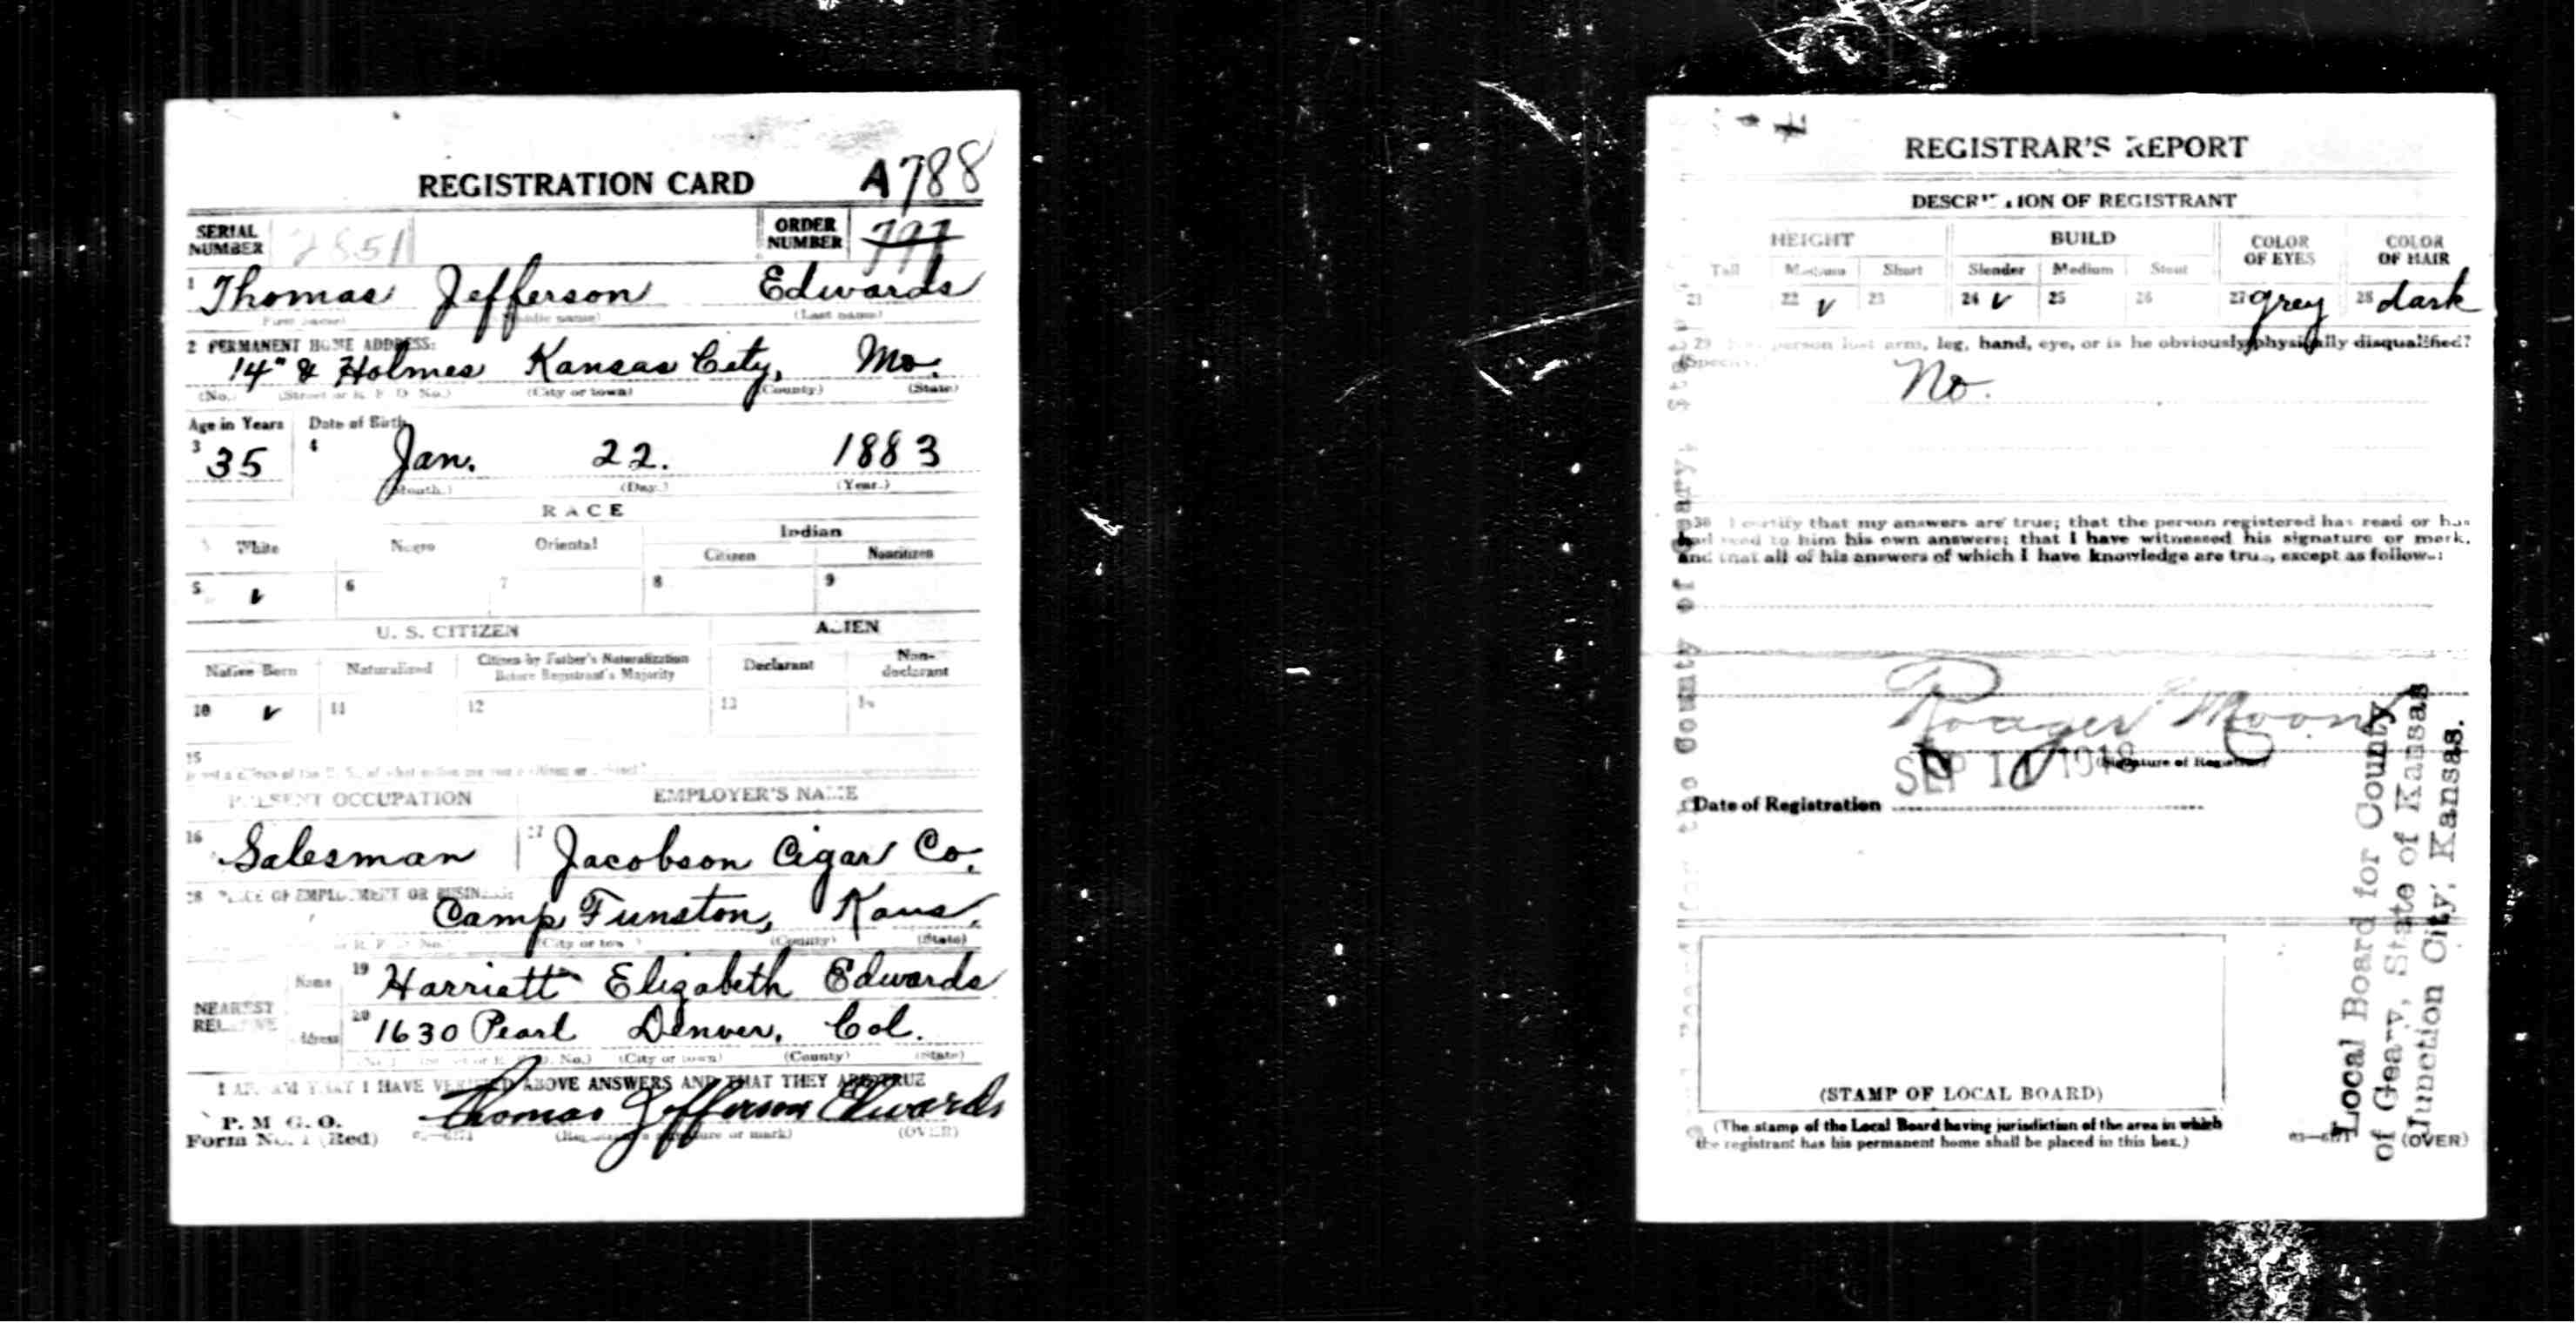 REGISTRATION CARD A788
SERIAL NUMBER 2851 ORDER NUMBER
1 Thomas Jefferson Edwards
(Last name)
2 PERMANENT HOME ADDRESS:
14" & Holmes Kansas City, Mo.
(No.) (City or town) (County) (State)
Age in Years Date of Birth
3 35 4 Jan. 22. 1883
(Month.) (Day.) (Year.)
RACE
White Negro Oriental Indian
Citizen Noncitizen
5 v 6 7 8 9
U. S. CITIZEN ALIEN
Native Born Naturalized Citizen by Father's Naturalization Before Registrant's Majority Declarant Non-declarant
10 v 11 12 13
15
PRESENT OCCUPATION EMPLOYER'S NAME
16 Salesman 17 Jacobson Cigar Co.
PLACE OF EMPLOYMENT OR BUSINESS:
Camp Funston, Kans.
(County) (State)
NEAREST RELATIVE
Name 19 Harriett Elizabeth Edwards
Address 20 1630 Pearl Denver, Col.
No.) (City or town) (County) (State)
I AFFIRM THAT I HAVE VERIFIED ABOVE ANSWERS AND THAT THEY ARE TRUE
P. M. G. O.
Form No. 1 (Red) Thomas Jefferson Edwards
(Registrant's signature or mark) (OVER)
REGISTRAR'S REPORT
DESCRIPTION OF REGISTRANT
HEIGHT BUILD COLOR OF EYES COLOR OF HAIR
Tall Medium Short Slender Medium Stout
21 22 v 23 24 v 25 26 27 grey 28 dark
29 person lost arm, leg, hand, eye, or is he obviously physically disqualified?
(Specify)
No.
30 I certify that my answers are true; that the person registered has read or has
had read to him his own answers; that I have witnessed his signature or mark,
and that all of his answers of which I have knowledge are true, except as follows:
Moon
(Signature of Registrar)
SEP 1918
Date of Registration
Local Board for County
of Geary, State of Kansas
Junction City, Kansas.
(STAMP OF LOCAL BOARD)
(The stamp of the Local Board having jurisdiction of the area in which
the registrant has his permanent home shall be placed in this box.)
(OVER)